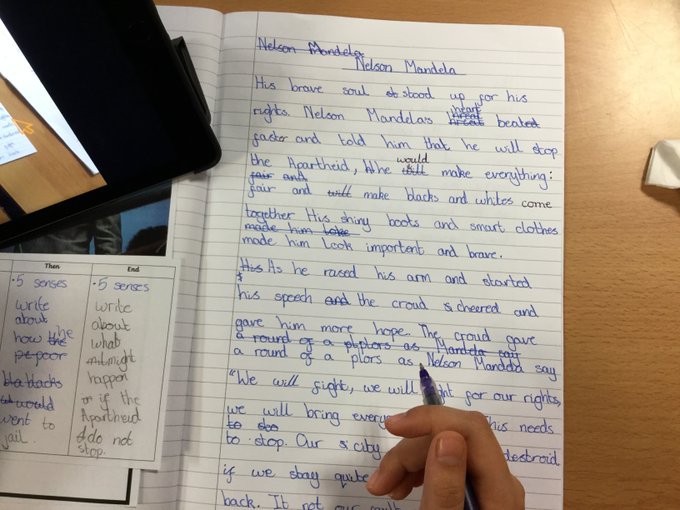 Nelson Mandela
Nelson Mandela
His brave soul st stood up for his
rights. Nelson Mandelas heart beated
faster and told him that he will stop
the Apartheid, he would will make everything:
fair and
fair and will make blacks and whites come
together His shiny boots and smart clothes
made him Loke
made him Look importent and brave.
His As he raised his arm and started
his speech and the croud cheered and
gave him more hope. The croud gave
a round of a plors as Mandela say
a round of a plors as Nelson Mandela say
"We will fight, we will for our rights,
we will bring needs
to sto
to stop. Our city destroid
if we stay quite
back. It not our
Then
• 5 senses
write
about
how the he
pe poor
bla blacks
would
went to
jail.
End
• 5 senses
write
about
what
might
happen
if the
Apartheid
do not
stop.